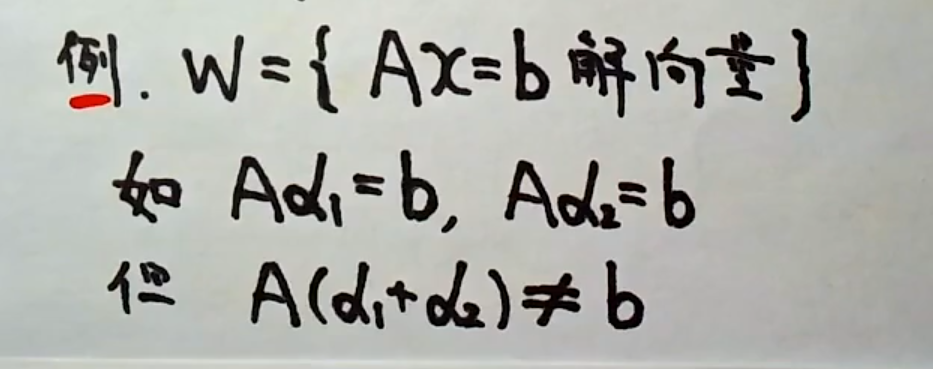 例. W={ Ax=b 解向量}
如 Aα₁=b, Aα₂=b
但 A(α₁+α₂)≠b